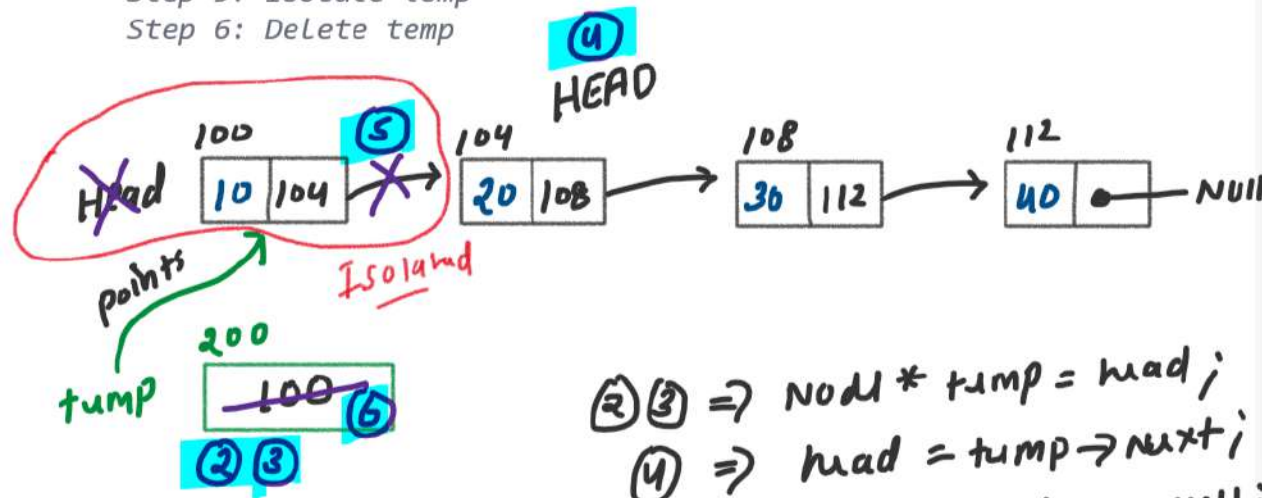 Step 6: Delete temp
4
HEAD
100
5
104
108
112
Head
10 104
20 108
30 112
40
NUll
points
Isolated
200
temp
100
6
2 3
2 3 => Node * temp = head ;
4 => head = temp -> next ;